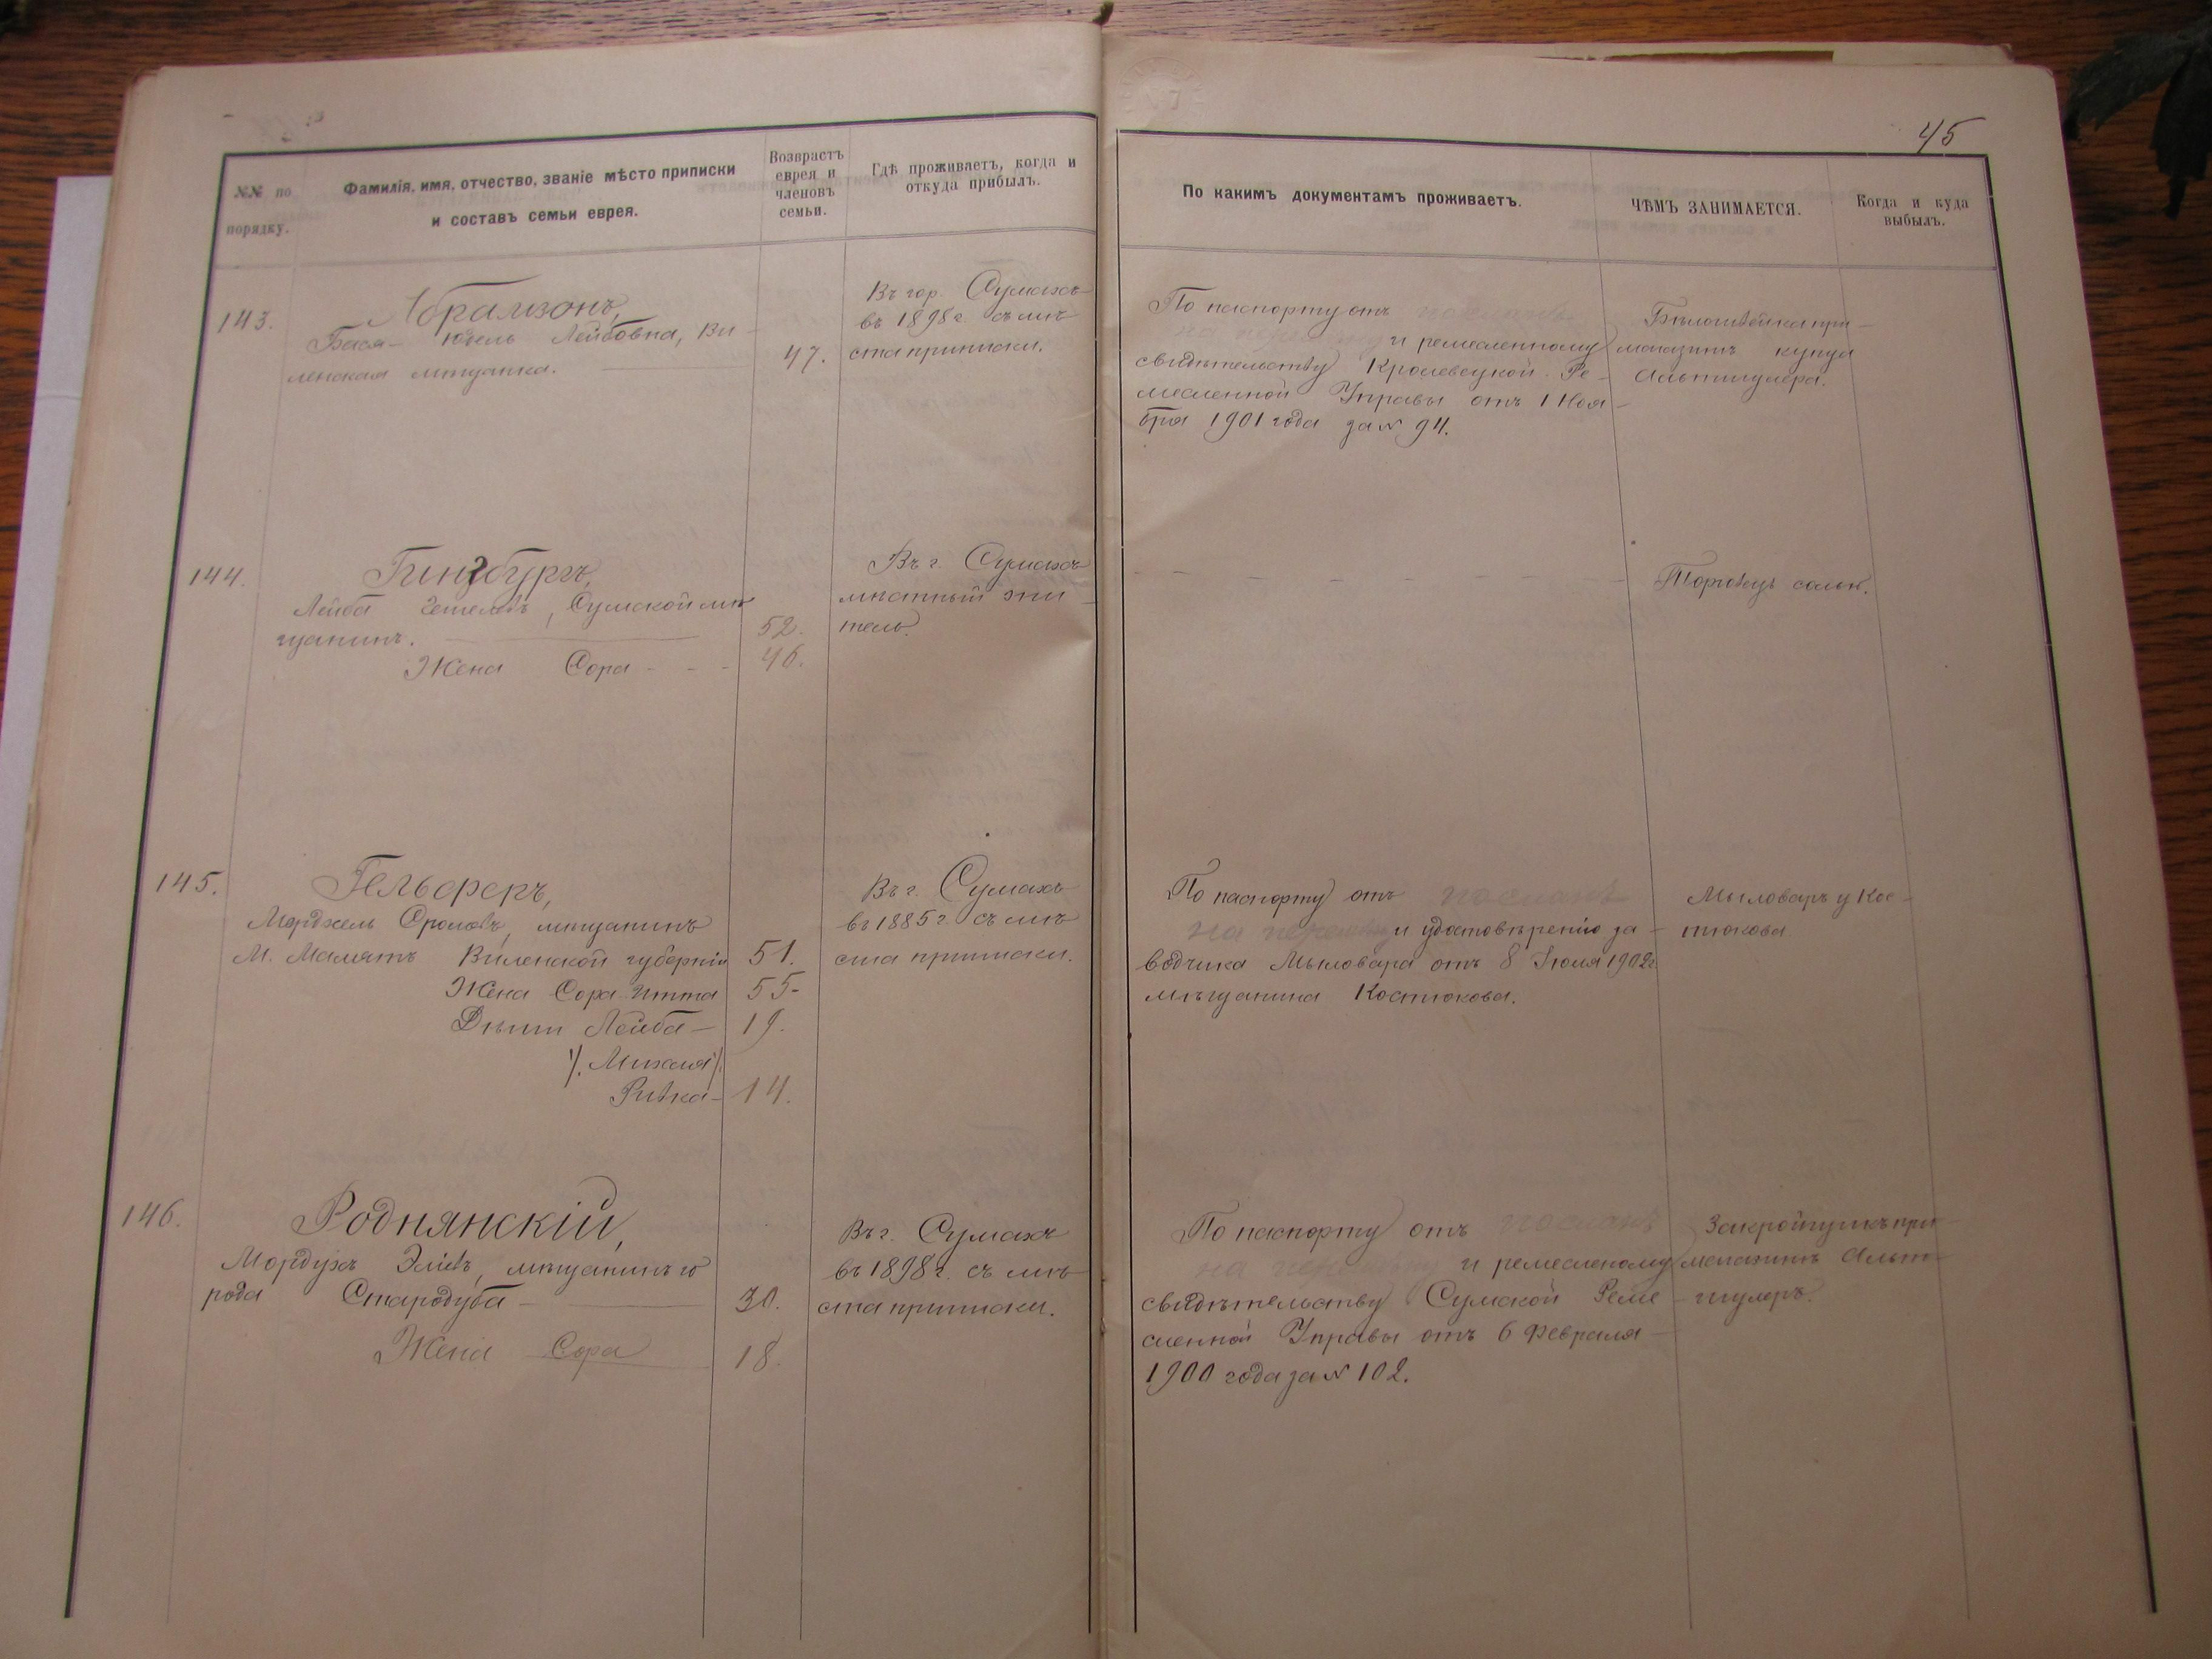 45
№№ по порядку.
Фамилія, имя, отчество, званіе мѣсто приписки
и составъ семьи еврея.
Возврастъ
еврея и
членовъ
семьи.
Гдѣ проживаетъ, когда и
откуда прибылъ.
По какимъ документамъ проживаетъ.
ЧѢМЪ ЗАНИМАЕТСЯ.
Когда и куда
выбылъ.
143.
Абрамзонъ,
Бася-Юдель Лейбовна, Ви-
ленская мѣщанка.
47.
Въ гор. Сумахъ
въ 1898 г. съ мѣ-
ста приписки.
По паспорту отъ посланъ
на перемѣну и ремесленному
свидѣтельству Кролевецкой Ре-
месленной Управы отъ 1 Ноя-
бря 1901 года за № 94.
Бѣлошвейка при-
магазинѣ купца
Альтшулера.
144.
Гинзбургъ,
Лейба Зетелевъ, Сумской мѣ-
щанинъ.
52.
Жена Сора - - -
46.
Въ г. Сумахъ
мѣстный жи-
тель.
Торговецъ сальн.
145.
Гельферъ,
Мордхель Сролевъ, мѣщанинъ
М. Мамятъ Виленской губерніи
51.
Жена Сора-Итта
55-
Дѣти Лейба-
19.
/. Михля/.
Ривка-
14.
Въ г. Сумахъ
въ 1885 г. съ мѣ-
ста приписки.
По паспорту отъ посланъ
на перемѣну и удостовѣренію за-
водчика Мыловара отъ 8 Іюля 1902 г.
мѣщанина Костюкова.
Мыловаръ у Кос-
тюкова.
146.
Роднянскій,
Мордухъ Эліевъ, мѣщанинъ го
рода Стародуба-
30.
Жена Сора
18.
Въ г. Сумахъ
въ 1898 г. съ мѣ-
ста приписки.
По паспорту отъ посланъ
на перемѣну и ремесленому
свидѣтельству Сумской Реме-
сленной Управы отъ 6 Февраля-
1900 года за № 102.
Закройщикъ при-
магазинѣ Альт-
шулеръ.